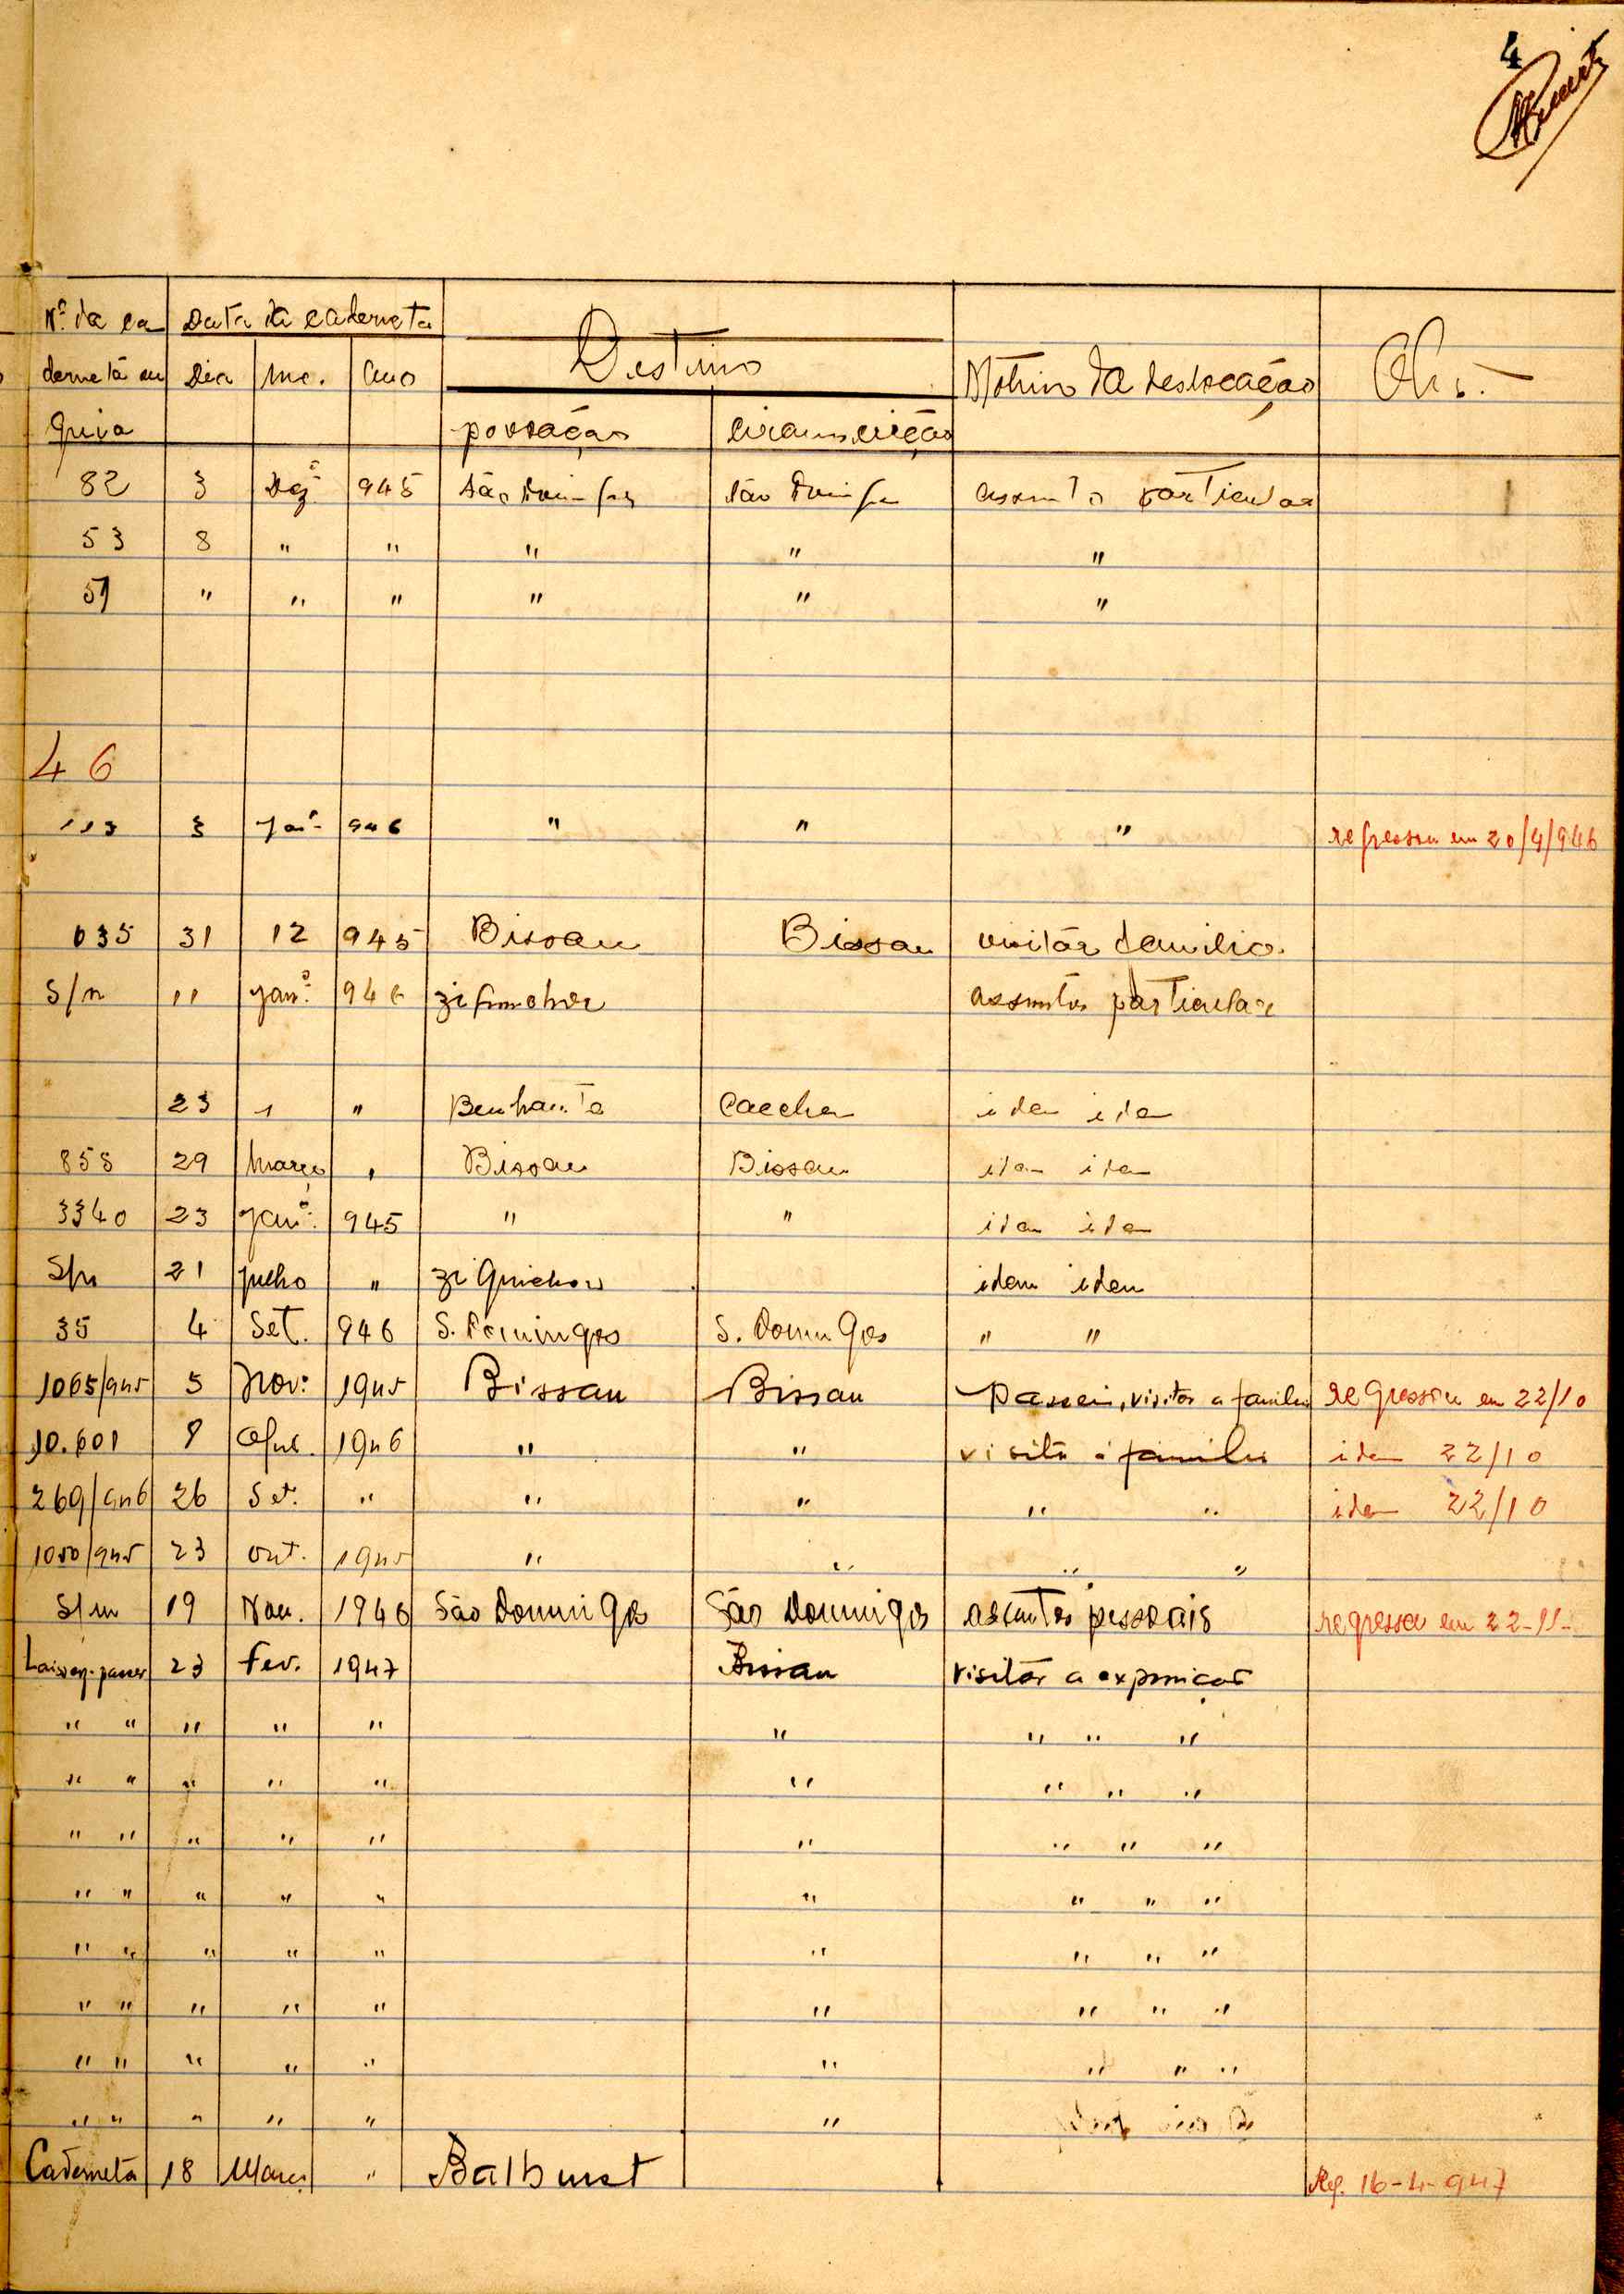 4
Nº da ca Data da caderneta Destino Motivo da deslocação Obs.
derneta ou Dia Me. Ano
Guia povoação circunscrição
82 3 Dezº 945 São Domingos São Domingos assunto particular
53 8 " " " " "
57 " " " " " "
46
113 3 Janº 946 " " " regressou em 20/4/946
635 31 12 945 Bissau Bissau visitar familia
S/n 11 Janº 946 assuntos particular
23 " " Cacheu idem idem
858 29 Março " Bissau Bissau idem idem
3340 23 Janº 945 " " idem idem
S/n 21 Julho " Ziguichor idem idem
35 4 Set. 946 S. Domingos S. Domingos " "
1065/945 5 Nov: 1945 Bissau Bissau passeio, visitar a familia regressou em 22/10
10.601 8 1946 " " visita á familia idem 22/10
269/946 26 Set. " " " " " idem 22/10
1050/945 23 Out. 1945 " " " "
S/n 19 Nov. 1946 São Domingos São Domingos assuntos pessoais regressou em 22-11-
Laissez-passer 23 Fev. 1947 Bissau visitar a exposição
" " " " " " " " "
" " " " " " " " "
" " " " " " " " "
" " " " " " " " "
" " " " " " " " "
" " " " " " " " "
" " " " " " " " "
" " " " " "
Caderneta 18 Março " Balburst Reg. 16-4-947